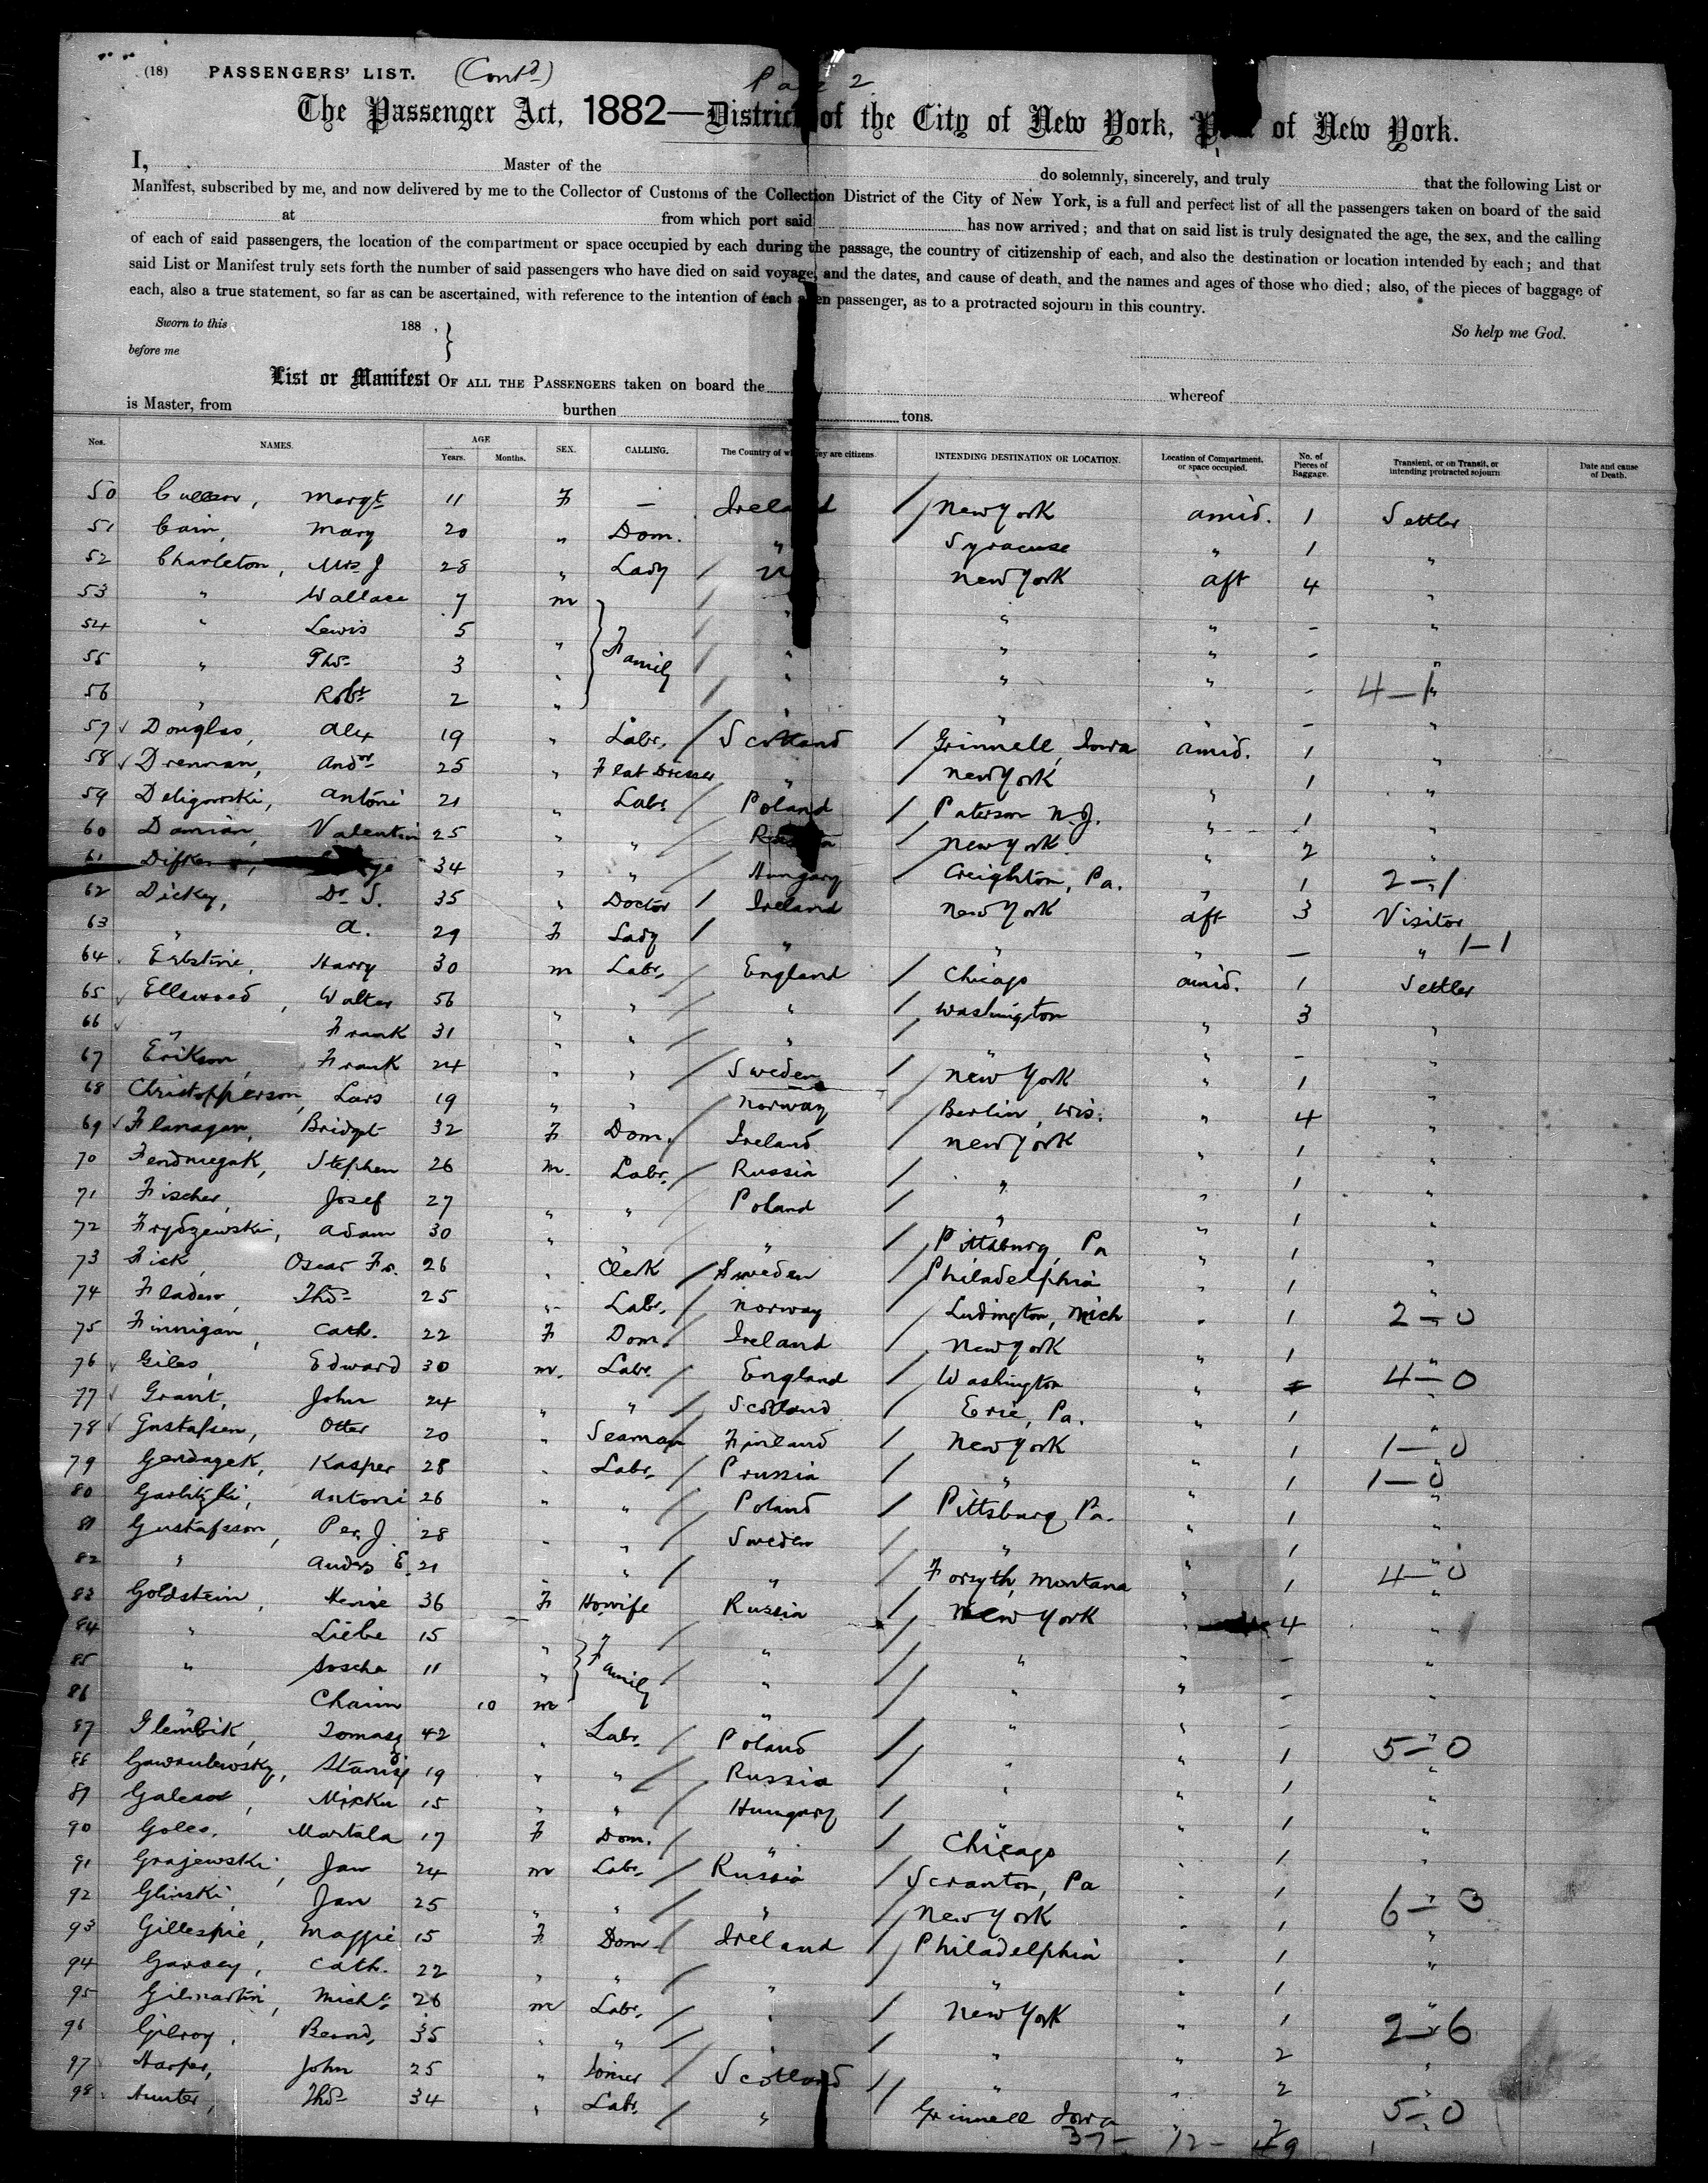 (18) PASSENGERS' LIST. (Contd) Page 2
The Passenger Act, 1882—District of the City of New York, Port of New York.
I, Master of the do solemnly, sincerely, and truly that the following List or
Manifest, subscribed by me, and now delivered by me to the Collector of Customs of the Collection District of the City of New York, is a full and perfect list of all the passengers taken on board of the said
at from which port said has now arrived; and that on said list is truly designated the age, the sex, and the calling
of each of said passengers, the location of the compartment or space occupied by each during the passage, the country of citizenship of each, and also the destination or location intended by each; and that
said List or Manifest truly sets forth the number of said passengers who have died on said voyage, and the dates, and cause of death, and the names and ages of those who died; also, of the pieces of baggage of
each, also a true statement, so far as can be ascertained, with reference to the intention of each alien passenger, as to a protracted sojourn in this country.
Sworn to this 188 , So help me God.
before me
List or Manifest OF ALL THE PASSENGERS taken on board the whereof
is Master, from burthen tons.
Nos. NAMES. AGE Years. Months. SEX. CALLING. The Country of which they are citizens. INTENDING DESTINATION OR LOCATION. Location of Compartment, or space occupied. No. of Pieces of Baggage. Transient, or on Transit, or intending protracted sojourn Date and cause of Death.
50 Margt 11 F — Ireland / New York amid. 1 Settler
51 Cain, Mary 20 " Dom. " Syracuse " 1 "
52 Charleton, Mrs J 28 " Lady / New York aft 4 "
53 " Wallace 7 m / " " " - "
54 " Lewis 5 " Family / " " " - "
55 " Thos 3 " / " " " - 4-1 "
56 " Robt 2 " / " " " - "
57 Douglas, Alex 19 " Labr. / Scotland / Grinnell, Iowa amid. 1 "
58 Drennan, Andw 25 " Flat Dresser " New York " 1 "
59 Deligowski, Antoni 21 " Labr / Poland / Paterson N.J. " 1 "
60 Damian, Valentin 25 " " / / New York " 2 "
61 34 " " / Hungary Creighton, Pa. " 1 2-1
62 Dickey, Dr S. 35 " Doctor / Ireland New York aft 3 Visitor
63 " A. 29 F Lady / " " " — " 1-1
64 Harry 30 m Labr. / England / Chicago amid. 1 Settler
65 Ellswood, Walter 56 " " / " / Washington " 3 "
66 " Frank 31 " " / " / " " - "
67 Erikson, Frank 24 " " / Sweden / New York " 1 "
68 Christopperson, Lars 19 " " Norway / Berlin, Wis. " 4 "
69 Flanagan, Bridget 32 F Dom. / Ireland / New York " 1 "
70 Stephen 26 m. Labr. / Russia / " " 1 "
71 Fischer, Josef 27 " " Poland / " " 1 "
72 Frydzewski, Adam 30 " " " / Pittsburg, Pa " 1 "
73 Fick, Oscar Fr. 26 " Clerk / Sweden / Philadelphia " 1 "
74 Thos 25 " Labr. / Norway / Ludington, Mich " 1 2-0
75 Finnigan, Cath. 22 F Dom / Ireland / New York " 1 "
76 Giles, Edward 30 m. Labr. / England / Washington " 4-0
77 Grant, John 24 " " / Scotland / Erie, Pa. " 1 "
78 Gustafsen, Otter 20 " Seaman Finland / New York " 1 1-0
79 Kasper 28 " Labr / Prussia / " " 1 1-0
80 Antoni 26 " " / Poland / Pittsburg Pa. " 1 "
81 Gustafsson, Per J. 28 " " Sweden / " " 1 "
82 " Anders E. 21 " " / " / Forsyth, Montana " 1 4-0
83 Goldstein, 36 F Howife Russia / New York " 4 "
84 " Liebe 15 " Family / " / " " - "
85 " 11 " / " / " " - "
86 " Chaim 10 m " / " " - "
87 Tomasz 42 " Labr. / Poland / " " 1 5-0
88 19 " " / Russia / " " 1 "
89 15 " " / Hungary / " " 1 "
90 Goles, 17 F Dom. / " / Chicago " 1 "
91 Grajewski, Jan 24 m Labr. / Russia / Scranton, Pa " 1 "
92 Glinski, Jan 25 " " / " / New York " 1 6-0
93 Gillespie, Maggie 15 F Dom / Ireland / Philadelphia " 1 "
94 Garvey, Cath. 22 " " / " / " " 1 "
95 Gilmartin, Michl 26 m Labr. / " / New York " 1 2-6
96 Gilroy, Bernd, 35 " " / " / " " 2 "
97 Harper, John 25 " Joiner / Scotland / " " 2 "
98 Hunter, Thos 34 " Labr. / " / Grinnell Iowa " 2 5-0
37- 12- 49